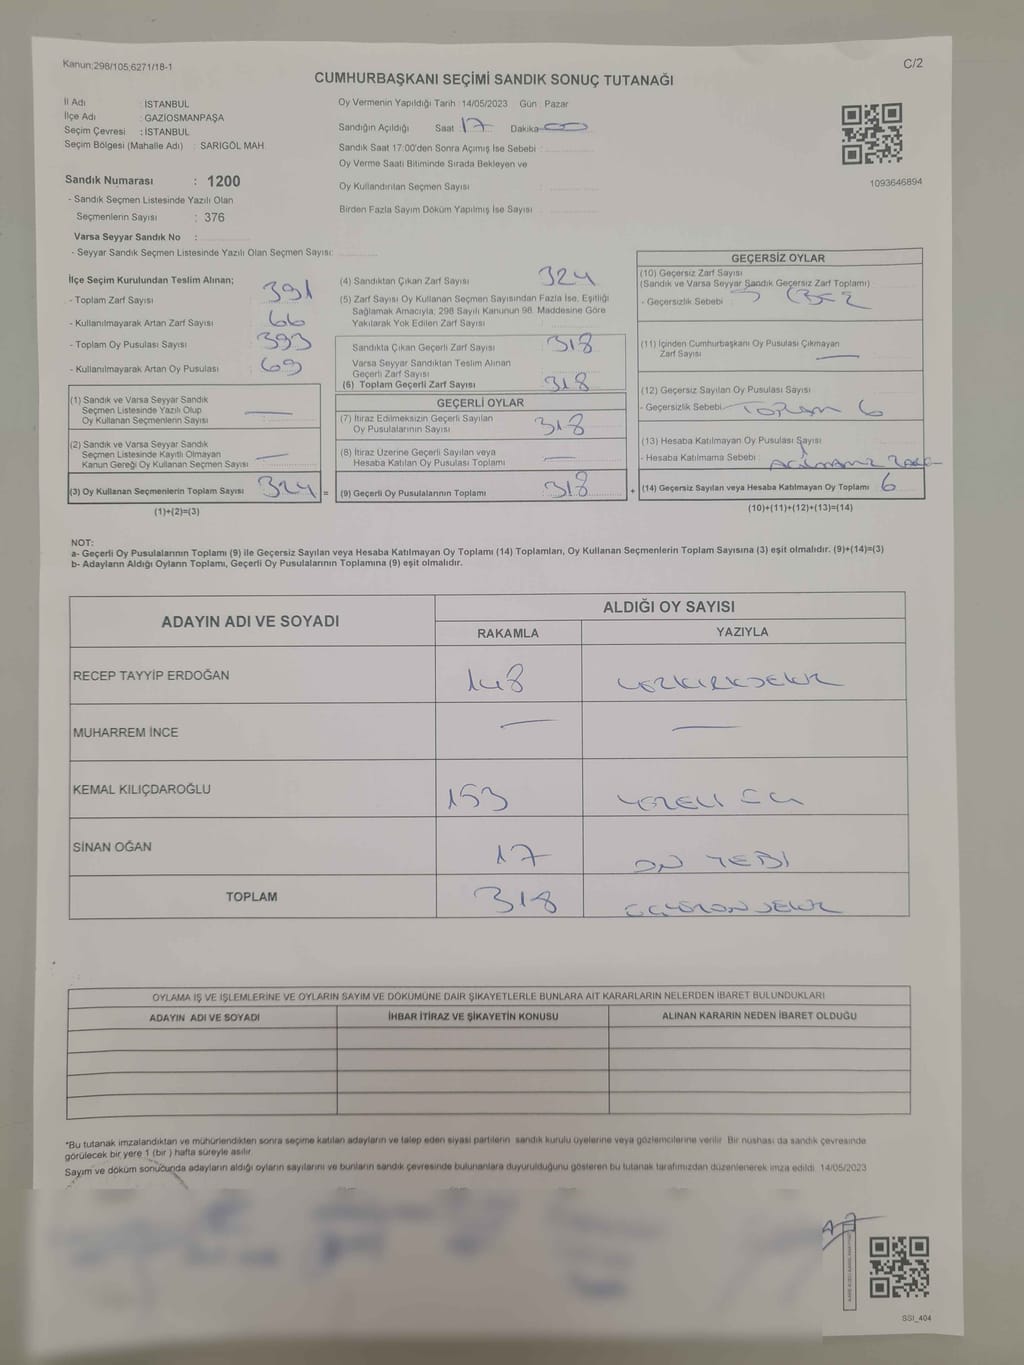 Kanun:298/105;6271/18-1
C/2
CUMHURBAŞKANI SEÇİMİ SANDIK SONUÇ TUTANAĞI
İl Adı : İSTANBUL
İlçe Adı : GAZİOSMANPAŞA
Seçim Çevresi : İSTANBUL
Seçim Bölgesi (Mahalle Adı) : SARIGÖL MAH.
Sandık Numarası : 1200
- Sandık Seçmen Listesinde Yazılı Olan
Seçmenlerin Sayısı : 376
Varsa Seyyar Sandık No :
- Seyyar Sandık Seçmen Listesinde Yazılı Olan Seçmen Sayısı:
Oy Vermenin Yapıldığı Tarih : 14/05/2023 Gün : Pazar
Sandığın Açıldığı Saat : 17 Dakika 00
Sandık Saat 17:00'den Sonra Açımış İse Sebebi :
Oy Verme Saati Bitiminde Sırada Bekleyen ve
Oy Kullandırılan Seçmen Sayısı :
Birden Fazla Sayım Döküm Yapılmış İse Sayısı :
1093646894
İlçe Seçim Kurulundan Teslim Alınan;
- Toplam Zarf Sayısı : 391
- Kullanılmayarak Artan Zarf Sayısı : 66
- Toplam Oy Pusulası Sayısı : 393
- Kullanılmayarak Artan Oy Pusulası : 69
(1) Sandık ve Varsa Seyyar Sandık
Seçmen Listesinde Yazılı Olup
Oy Kullanan Seçmenlerin Sayısı
(2) Sandık ve Varsa Seyyar Sandık
Seçmen Listesinde Kayıtlı Olmayan
Kanun Gereği Oy Kullanan Seçmen Sayısı
(3) Oy Kullanan Seçmenlerin Toplam Sayısı 324 =
(1)+(2)=(3)
(4) Sandıktan Çıkan Zarf Sayısı 324
(5) Zarf Sayısı Oy Kullanan Seçmen Sayısından Fazla İse, Eşitliği
Sağlamak Amacıyla; 298 Sayılı Kanunun 98. Maddesine Göre
Yakılarak Yok Edilen Zarf Sayısı :
Sandıkta Çıkan Geçerli Zarf Sayısı 318
Varsa Seyyar Sandıktan Teslim Alınan
Geçerli Zarf Sayısı
(6) Toplam Geçerli Zarf Sayısı 318
GEÇERLİ OYLAR
(7) İtiraz Edilmeksizin Geçerli Sayılan
Oy Pusulalarının Sayısı 318
(8) İtiraz Üzerine Geçerli Sayılan veya
Hesaba Katılan Oy Pusulası Toplamı
(9) Geçerli Oy Pusulalarının Toplamı 318 +
GEÇERSİZ OYLAR
(10) Geçersiz Zarf Sayısı
(Sandık ve Varsa Seyyar Sandık Geçersiz Zarf Toplamı)
- Geçersizlik Sebebi
(11) İçinden Cumhurbaşkanı Oy Pusulası Çıkmayan
Zarf Sayısı
(12) Geçersiz Sayılan Oy Pusulası Sayısı
- Geçersizlik Sebebi TOPLAM 6
(13) Hesaba Katılmayan Oy Pusulası Sayısı
- Hesaba Katılmama Sebebi
(14) Geçersiz Sayılan veya Hesaba Katılmayan Oy Toplamı 6
(10)+(11)+(12)+(13)=(14)
NOT:
a- Geçerli Oy Pusulalarının Toplamı (9) ile Geçersiz Sayılan veya Hesaba Katılmayan Oy Toplamı (14) Toplamları, Oy Kullanan Seçmenlerin Toplam Sayısına (3) eşit olmalıdır. (9)+(14)=(3)
b- Adayların Aldığı Oyların Toplamı, Geçerli Oy Pusulalarının Toplamına (9) eşit olmalıdır.
ADAYIN ADI VE SOYADI
ALDIĞI OY SAYISI
RAKAMLA YAZIYLA
RECEP TAYYİP ERDOĞAN 148 YÜZKIRKSEKİZ
MUHARREM İNCE
KEMAL KILIÇDAROĞLU 153 YÜZELLİ ÜÇ
SİNAN OĞAN 17 ON YEDİ
TOPLAM 318 ÜÇYÜZONSEKİZ
OYLAMA İŞ VE İŞLEMLERİNE VE OYLARIN SAYIM VE DÖKÜMÜNE DAİR ŞİKAYETLERLE BUNLARA AİT KARARLARIN NELERDEN İBARET BULUNDUKLARI
ADAYIN ADI VE SOYADI İHBAR İTİRAZ VE ŞİKAYETİN KONUSU ALINAN KARARIN NEDEN İBARET OLDUĞU
*Bu tutanak imzalandıktan ve mühürlendikten sonra seçime katılan adayların ve talep eden siyasi partilerin sandık kurulu üyelerine veya gözlemcilerine verilir. Bir nushası da sandık çevresinde
görülecek bir yere 1 (bir ) hafta süreyle asılır.
Sayım ve döküm sonucunda adayların aldığı oyların sayılarını ve bunların sandık çevresinde bulunanlara duyurulduğunu gösteren bu tutanak tarafımızdan düzenlenerek imza edildi. 14/05/2023
SSI_404